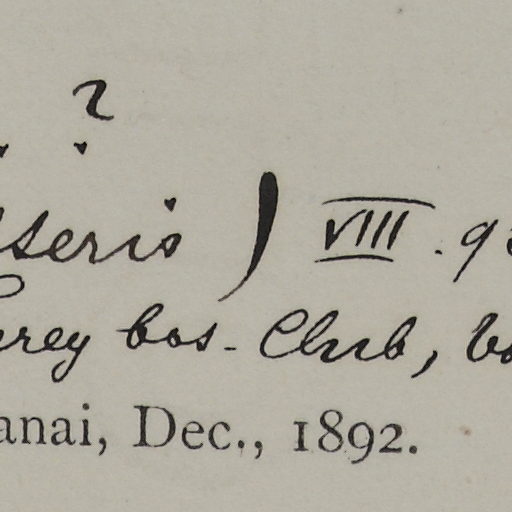 ?
seris) VIII. 9
rey bos- Club,
anai, Dec., 1892.